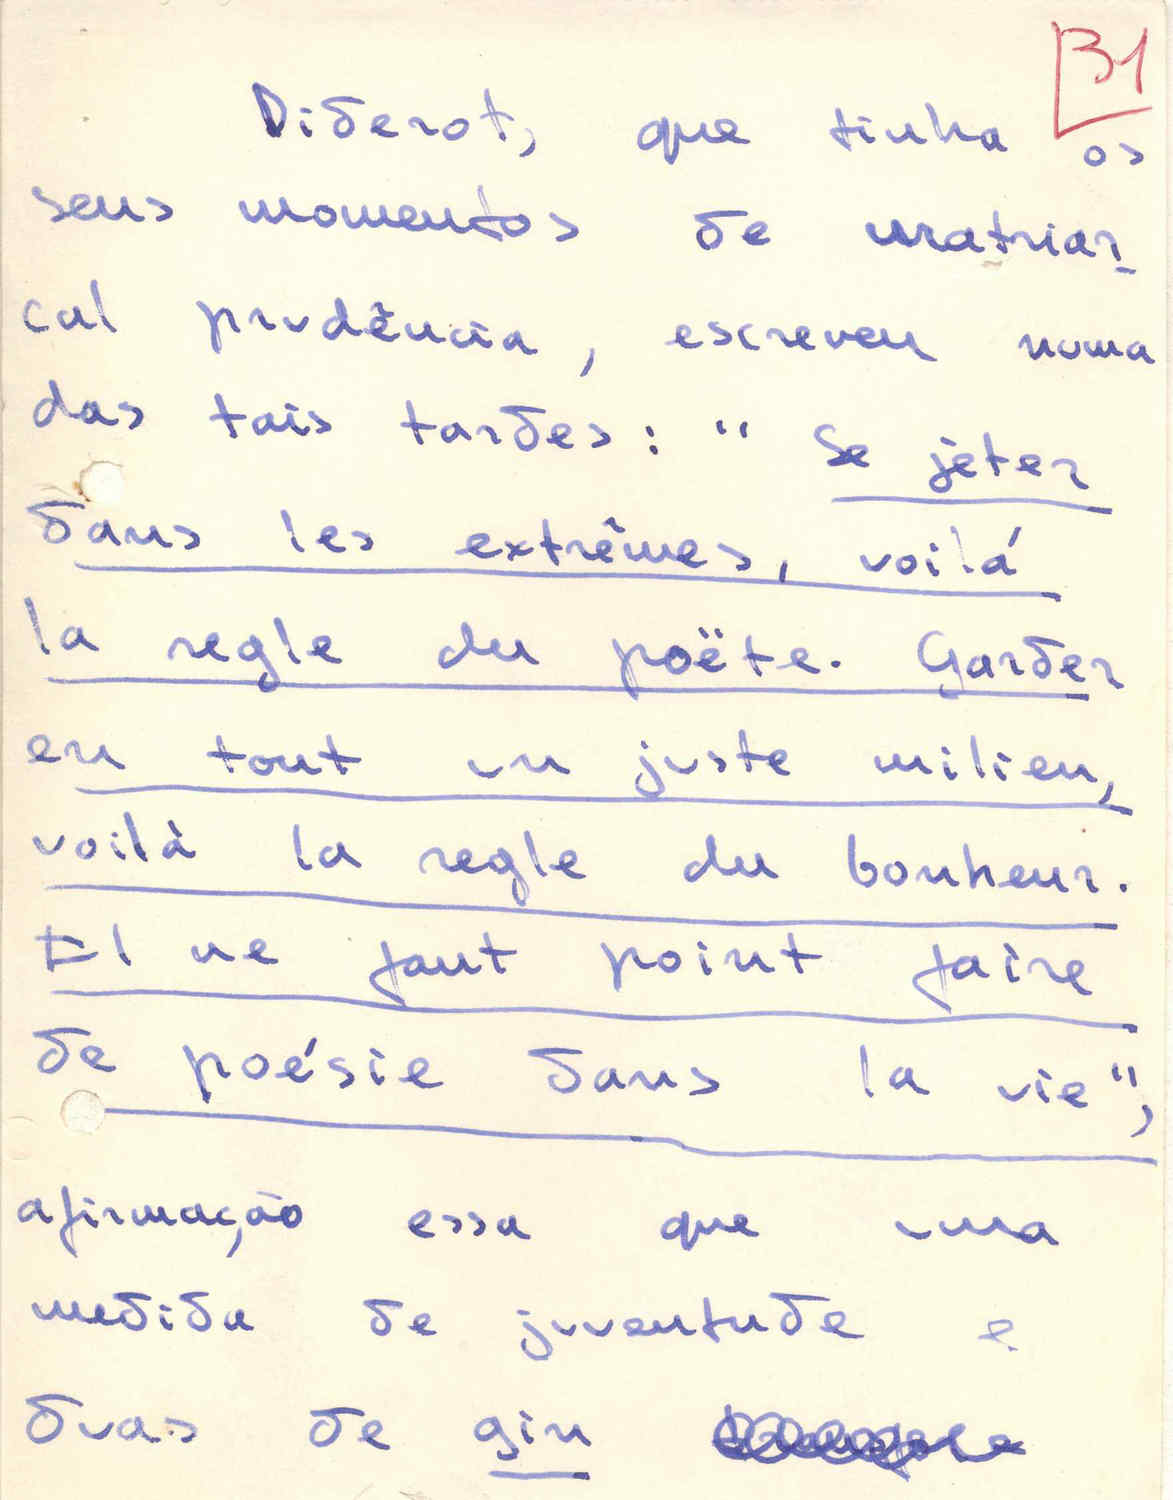 31
Diderot, que tinha os
seus momentos de matriar-
cal prudência, escreveu numa
das tais tardes: " Se jeter
dans les extrêmes, voilá
la regle du poëte. Garder
en tout un juste milieu,
voilà la regle du bonheur.
Il ne faut point faire
de poésie dans la vie",
afirmação essa que uma
medida de juventude e
duas de gin